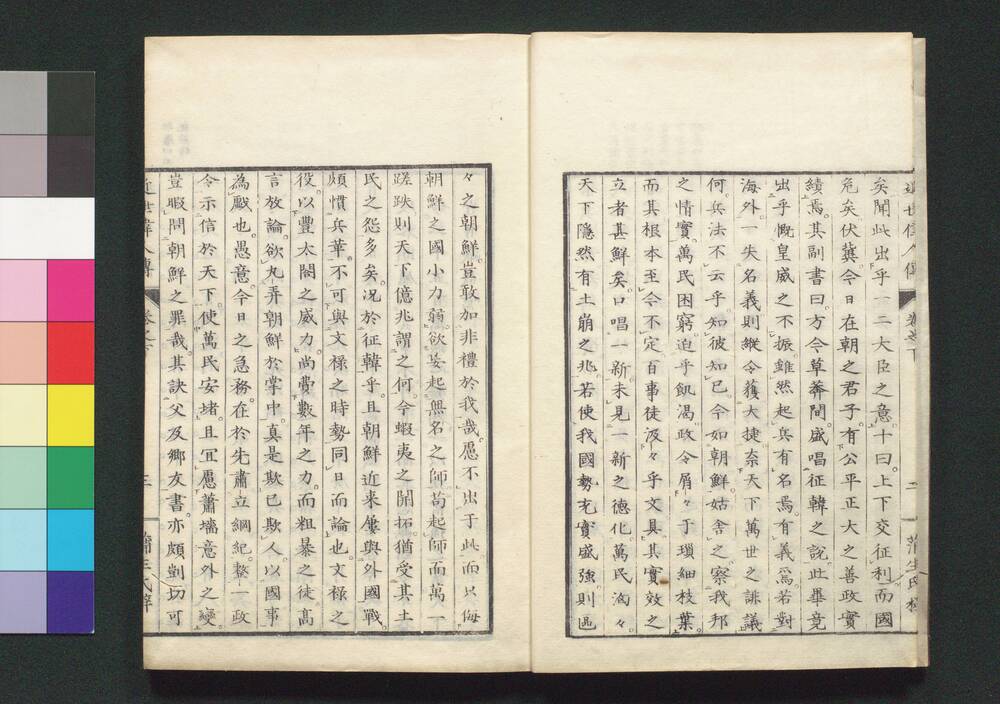 近世偉人傳 卷之下 二 蒲生氏梓
矣聞此出乎一二大臣之意十曰上下交征利而國
危矣伏冀今日在朝之君子有公平正大之善政實
績焉其副書曰方今草莽間盛唱征韓之說此畢竟
出乎慨皇威之不振雖然起兵有名焉有義焉若對
海外一失名義則縱令獲大捷奈天下萬世之誹議
何兵法不云乎知彼知己今如朝鮮姑舍之察我邦
之情實萬民困窮迫乎飢渴政令屑々于瑣細枝葉
而其根本至今不定百事徒汲々乎文具其實效之
立者甚鮮矣口唱一新未見一新之德化萬民洶々
天下隱然有土崩之兆若使我國勢充實盛強則區
々之朝鮮豈敢加非禮於我哉慮不出于此而只侮
朝鮮之國小力弱欲妄起無名之師苟起師而萬一
蹉跌則天下億兆謂之何今蝦夷之開拓猶受其土
民之怨多矣況於征韓乎且朝鮮近来屢與外國戰
頗慣兵革不可與文禄之時勢同日而論也文禄之
役以豐太閤之威力尚費數年之力而粗暴之徒高
言放論欲丸弄朝鮮於掌中真是欺己欺人以國事
為戲也愚意今日之急務在於先肅立綱紀整一政
令示信於天下使萬民安堵且宜慮蕭墻意外之變
豈暇問朝鮮之罪哉其訣父及鄉友書亦頗剴切可
近世偉人傳 卷之下 三 蒲生氏梓